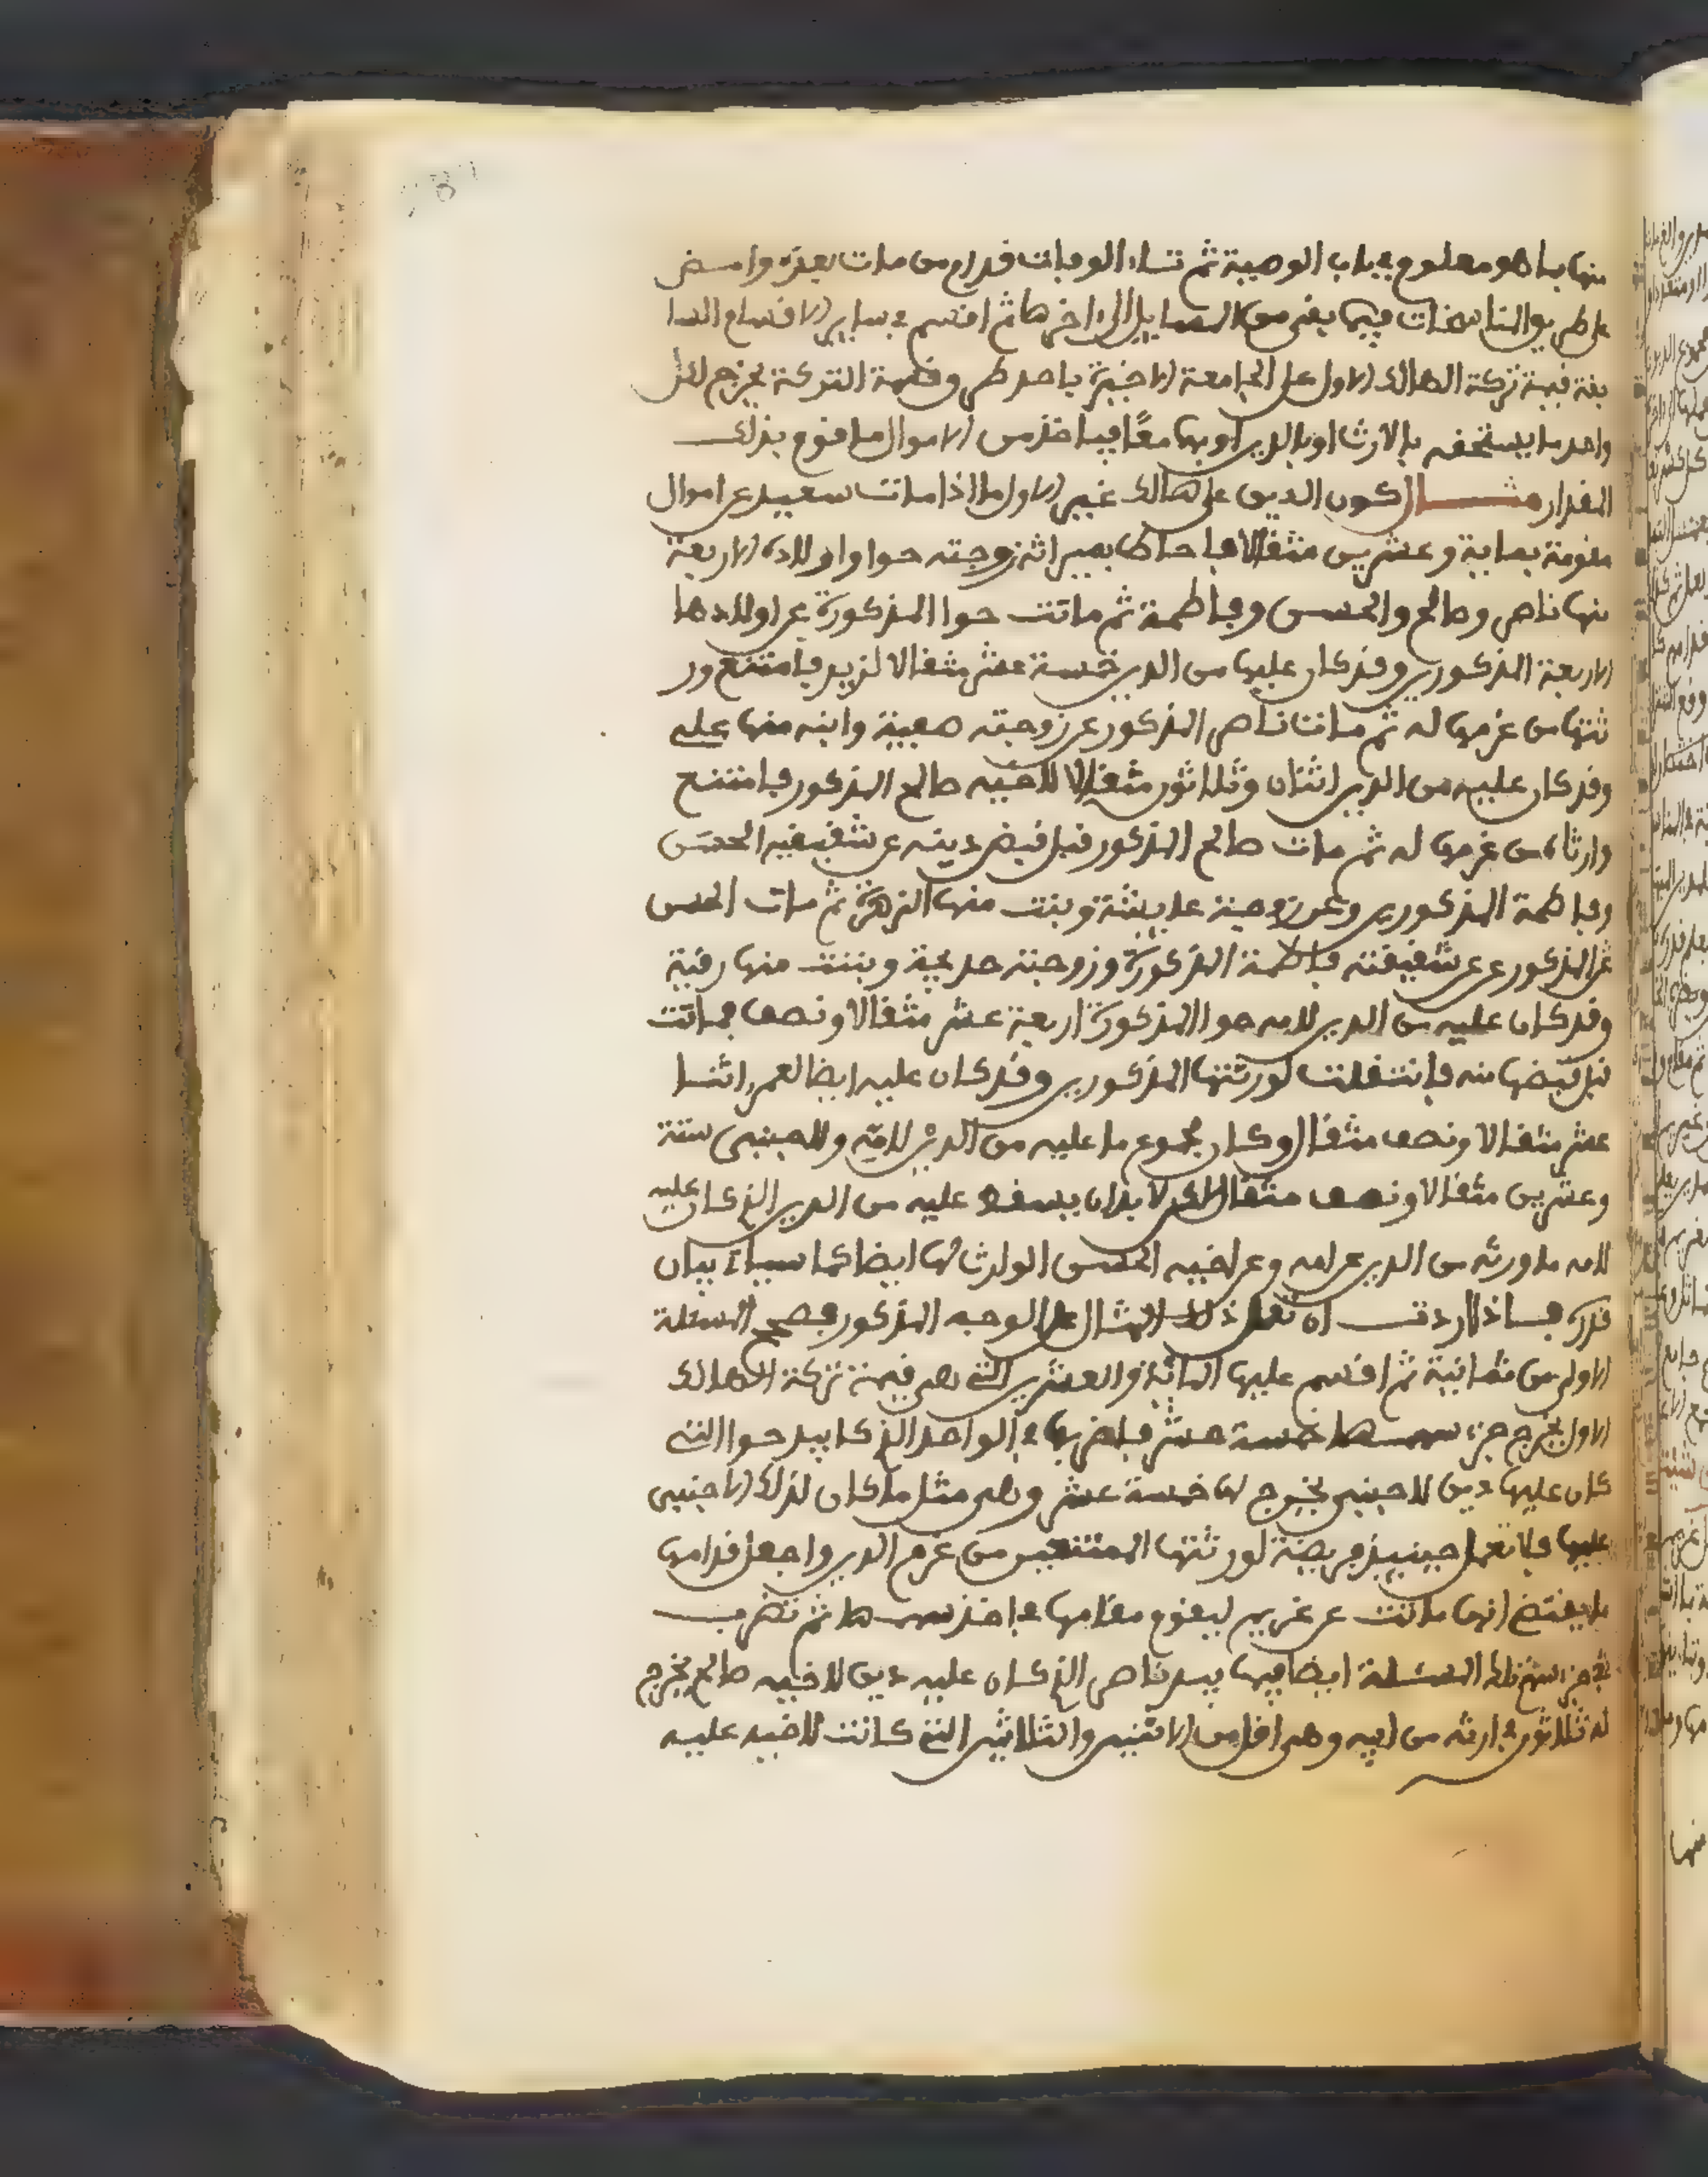 منها ما هو معلوم في باب الوصية ثم تاء الوفات فدام من مات بعده وامض
على طريق المناسخات فيما بقي من المسايل إلى اخرها ثم اقسم في ساير الاقسام السا
بقة قيمة تركة الهالك الاول على الجامعة الاخيرة باحد طرق قسمة التركة يخرج لكل
واحد ما يستحقه بالارث او بالدين او بهما معًا فياخذ من الاموال ما قوم بذلك
المقدار مثال كون الدين على هالك غير الاول ما اذا مات سعيد عن اموال
مقومة بماية وعشرين مثقالا فاحاط بميراثه زوجته حوا واولاده الاربعة
منها ناصر وصالح والحسن وفاطمة ثم ماتت حوا المذكورة عن اولادها
الاربعة المذكورين وقد كان عليها من الدين خمسة عشر مثقالا لزيد فامتنع ور
ثتها من غرمها له ثم مات ناصر المذكور عن زوجته صفية وابنه منها علي
وقد كان عليه من الدين اثنان وثلاثون مثقالا لاخيه صالح المذكور فامتنع
وارثاه من غرمها له ثم مات صالح المذكور قبل قبض دينه عن شقيقيه الحسن
وفاطمة المذكورين وعن زوجة عايشة وبنت منها الزهرة ثم مات الحسن
المذكور عن شقيقته فاطمة المذكورة وزوجته خديجة وبنت منها رقية
وقد كان عليه من الدين لامه حوا المذكورة اربعة عشر مثقالا ونصف فماتت
قبل قبضها منه فانتقلت لورثتها المذكورين وقد كان عليه ايضا لعمر اثنا
عشر مثقالا ونصف مثقال وكان مجموع ما عليه من الدين لامه وللاجنبي ستة
وعشرين مثقالا ونصف مثقال لكن لا بد ان يسقط عليه من الدين الذي كان عليه
لامه ما ورثه من الدين عن امه وعن اخيه الحسن الوارث لها ايضا كما سياتي بيان
قدره فاذا اردت ان تعمل ذلك المثال على الوجه المذكور فصحح المسئلة
الاولى من ثمانية ثم اقسم عليها الماية والعشرين التي هي قيمة تركة الهالك
الاول يخرج جزء سهمها خمسة عشر فاضربها في الواحد الذي كان بيد حوا التي
كان عليها دين لاجنبي يخرج لها خمسة عشر وهي مثل ما كان لذلك الاجنبي
عليها فلا تعمل حينيذ فريضة لورثتها الممتنعين من غرم الدين واجعل قدامها
ما يقتضي انها ماتت عن غريم ليقوم مقامها في اخذ سهمها ثم تضرب
جزء سهم تلك المسئلة ايضا فيما بيد ناصر الذي كان عليه دين لاخيه صالح يخرج
له ثلاثون في ارثه من ابيه وهي اقل من الاثنين والثلاثين التي كانت لاخيه عليه